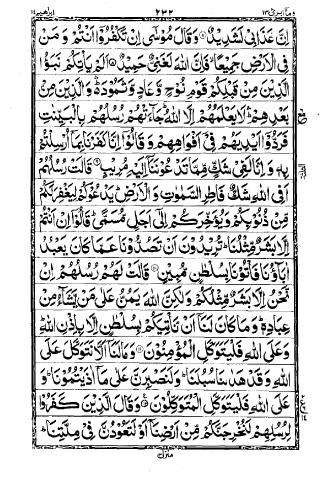 وما ابرئ ١٣ ٢٣٢ ابراهيم ١٤
اِنَّ عَذَابِیْ لَشَدِیْدٌ ۝ وَقَالَ مُوْسٰۤی اِنْ تَكْفُرُوْۤا اَنْتُمْ وَمَنْ
فِی الْاَرْضِ جَمِیْعًا ۙ فَاِنَّ اللّٰهَ لَغَنِیٌّ حَمِیْدٌ ۝ اَلَمْ یَاْتِكُمْ نَبَؤُا
الَّذِیْنَ مِنْ قَبْلِكُمْ قَوْمِ نُوْحٍ وَّعَادٍ وَّثَمُوْدَ ۛؕ وَالَّذِیْنَ مِنْۢ
بَعْدِهِمْ ۛؕ لَا یَعْلَمُهُمْ اِلَّا اللّٰهُ ؕ جَآءَتْهُمْ رُسُلُهُمْ بِالْبَیِّنٰتِ
فَرَدُّوْۤا اَیْدِیَهُمْ فِیْۤ اَفْوَاهِهِمْ وَقَالُوْۤا اِنَّا كَفَرْنَا بِمَاۤ اُرْسِلْتُمْ
بِهٖ وَاِنَّا لَفِیْ شَكٍّ مِّمَّا تَدْعُوْنَنَاۤ اِلَیْهِ مُرِیْبٍ ۝ قَالَتْ رُسُلُهُمْ
اَفِی اللّٰهِ شَكٌّ فَاطِرِ السَّمٰوٰتِ وَالْاَرْضِ ؕ یَدْعُوْكُمْ لِیَغْفِرَ لَكُمْ
مِّنْ ذُنُوْبِكُمْ وَیُؤَخِّرَكُمْ اِلٰۤی اَجَلٍ مُّسَمًّی ؕ قَالُوْۤا اِنْ اَنْتُمْ
اِلَّا بَشَرٌ مِّثْلُنَا ؕ تُرِیْدُوْنَ اَنْ تَصُدُّوْنَا عَمَّا كَانَ یَعْبُدُ
اٰبَآؤُنَا فَاْتُوْنَا بِسُلْطٰنٍ مُّبِیْنٍ ۝ قَالَتْ لَهُمْ رُسُلُهُمْ اِنْ
نَّحْنُ اِلَّا بَشَرٌ مِّثْلُكُمْ وَلٰكِنَّ اللّٰهَ یَمُنُّ عَلٰی مَنْ یَّشَآءُ مِنْ
عِبَادِهٖ ؕ وَمَا كَانَ لَنَاۤ اَنْ نَّاْتِیَكُمْ بِسُلْطٰنٍ اِلَّا بِاِذْنِ اللّٰهِ ؕ
وَعَلَی اللّٰهِ فَلْیَتَوَكَّلِ الْمُؤْمِنُوْنَ ۝ وَمَا لَنَاۤ اَلَّا نَتَوَكَّلَ عَلَی
اللّٰهِ وَقَدْ هَدٰىنَا سُبُلَنَا ؕ وَلَنَصْبِرَنَّ عَلٰی مَاۤ اٰذَیْتُمُوْنَا ؕ وَ
عَلَی اللّٰهِ فَلْیَتَوَكَّلِ الْمُتَوَكِّلُوْنَ ۝ وَقَالَ الَّذِیْنَ كَفَرُوْا
لِرُسُلِهِمْ لَنُخْرِجَنَّكُمْ مِّنْ اَرْضِنَاۤ اَوْ لَتَعُوْدُنَّ فِیْ مِلَّتِنَا ؕ
منزل